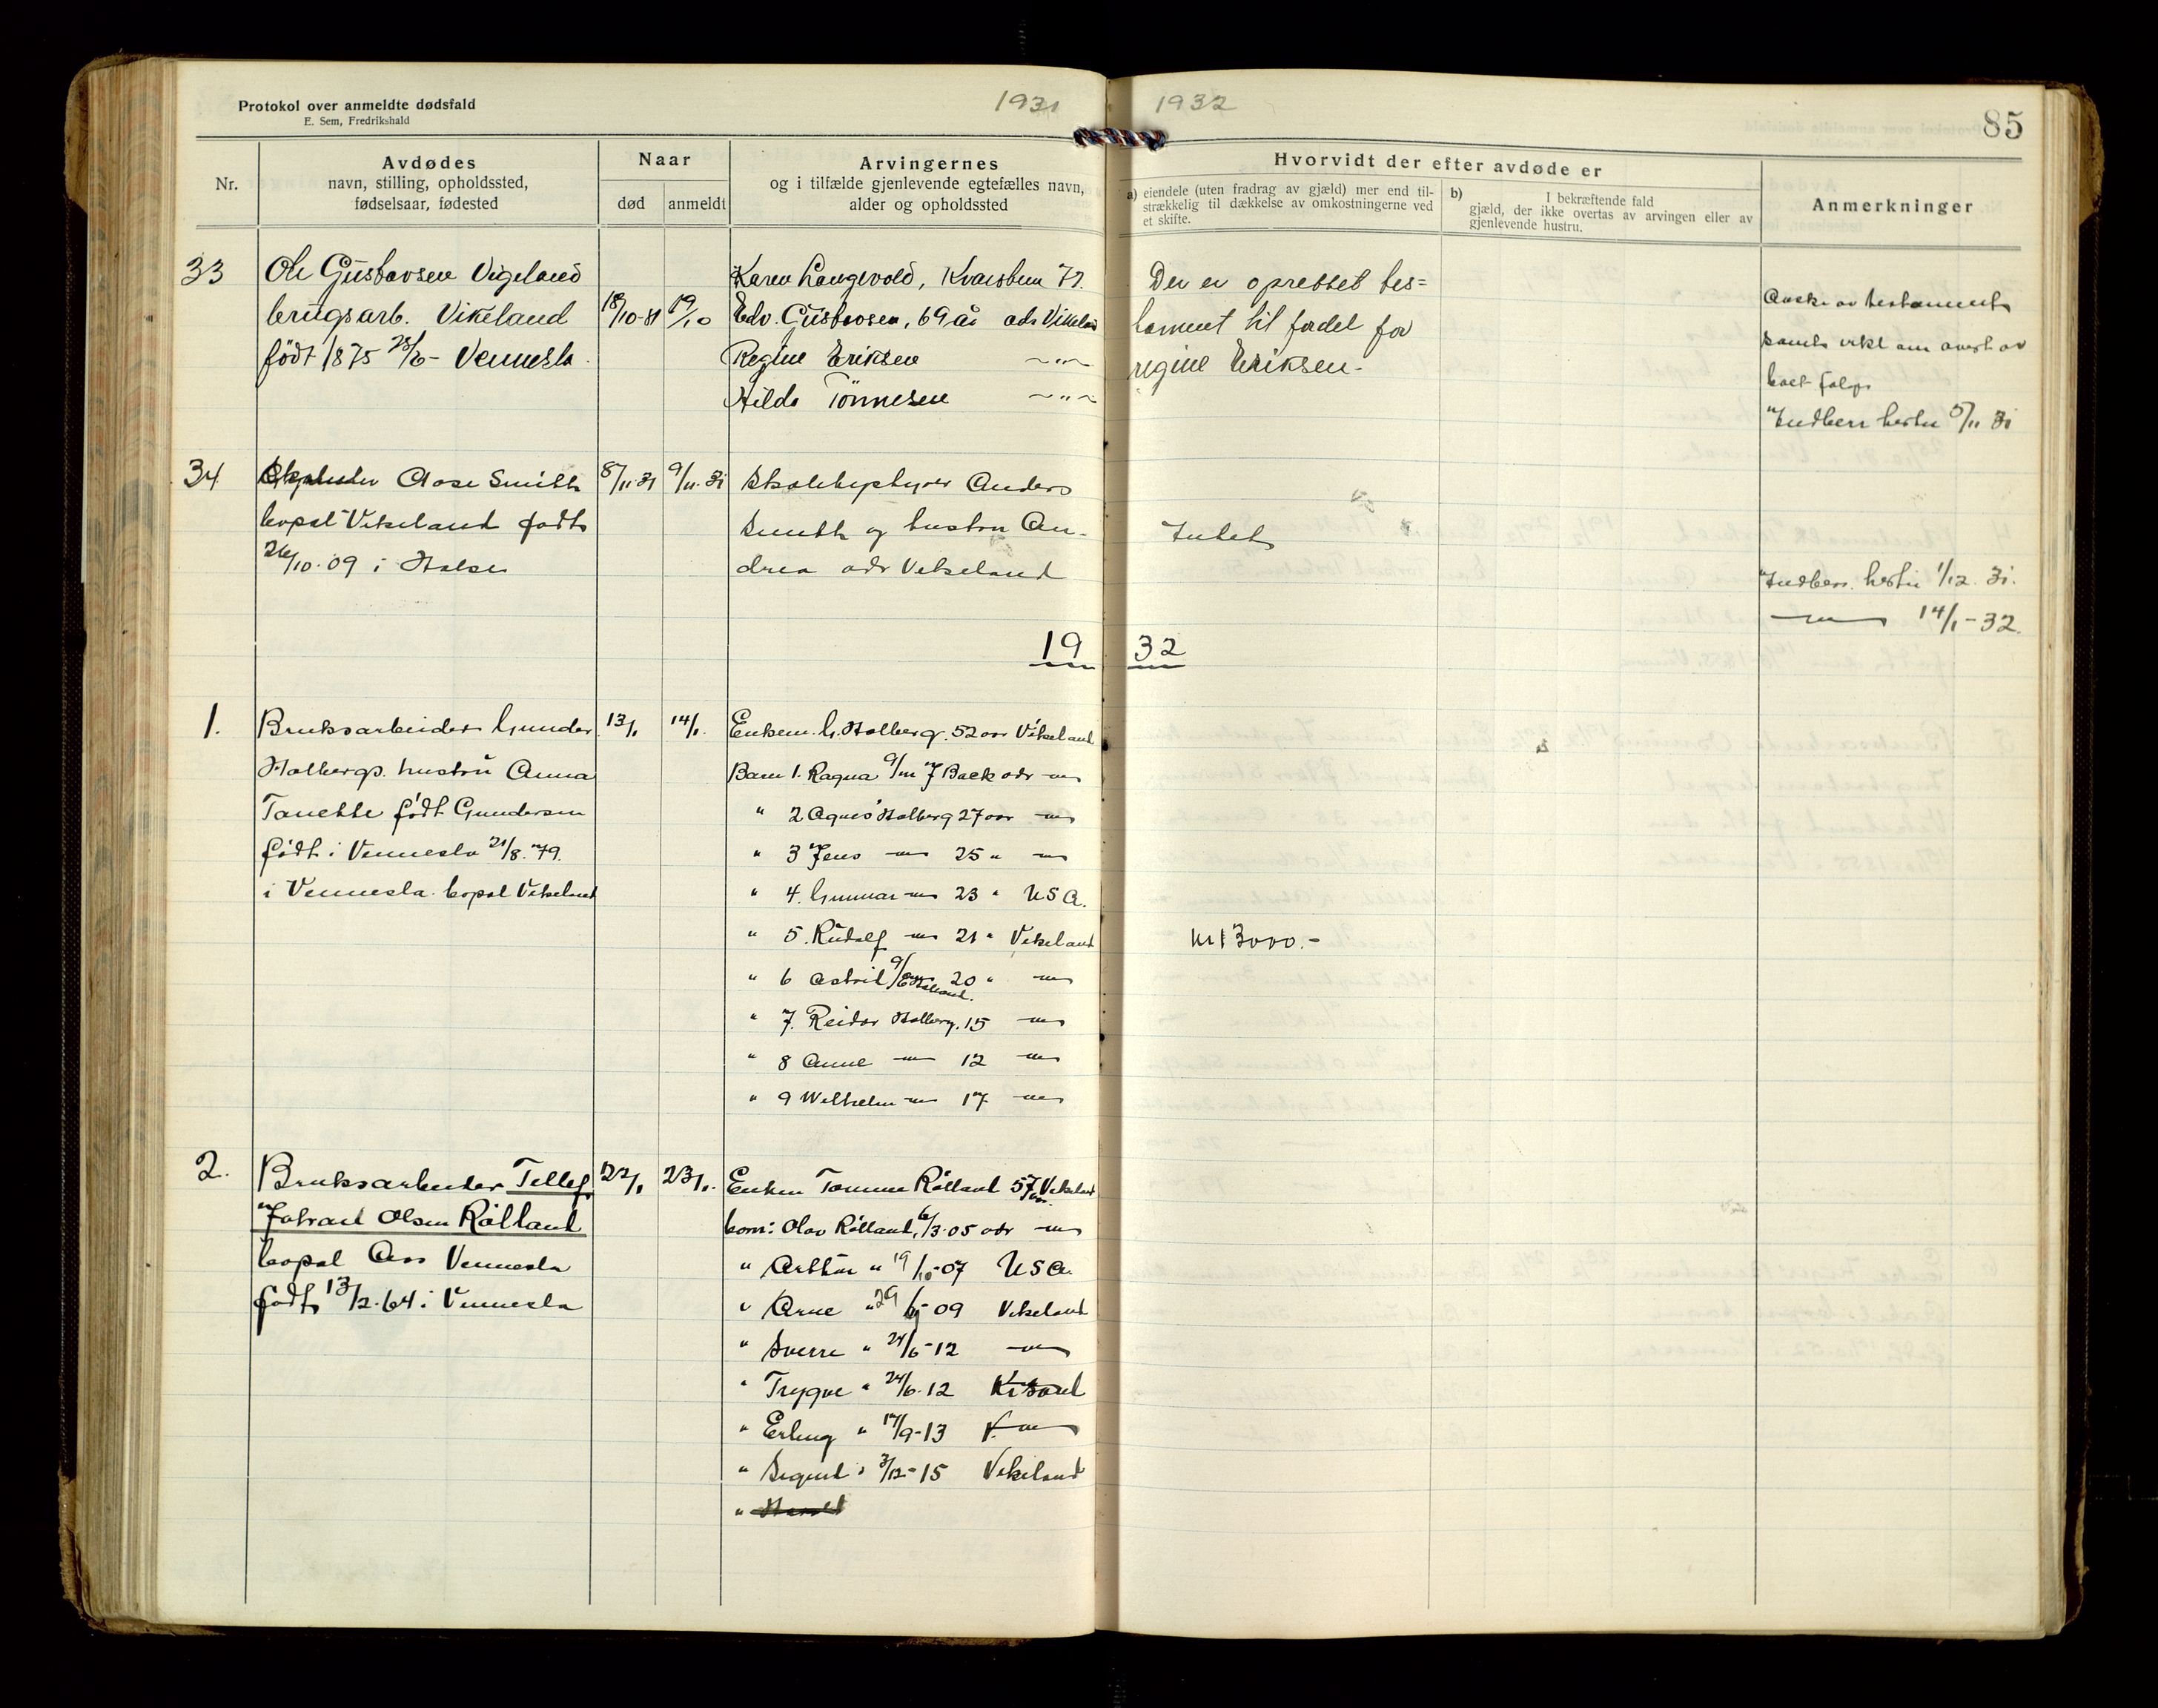 Protokol over anmeldte dødsfald
E. Sem, Fredrikshald
1931
1932
85
Nr.
Avdødes
navn, stilling, opholdssted,
fødselsaar, fødested
Naar
død
anmeldt
Arvingernes
og i tilfælde gjenlevende egtefælles navn,
alder og opholdssted
Hvorvidt der efter avdøde er
a) eiendele (uten fradrag av gjæld) mer end til-
strækkelig til dækkelse av omkostningerne ved
et skifte.
b) I bekræftende fald
gjæld, der ikke overtas av arvingen eller av
gjenlevende hustru.
Anmerkninger
33
Ole Gustavsen Vigeland
brugsarb. Vikeland
født 1875 Vennesla
18/10-31
19/10
Karen Langevold, 72.
Edv. Gustavsen, 69 år adr Vikeland
Regine Eriksen -"-
Hilda Tönnesen -"-
Der er oprettet tes=
tament til fordel for
regine Eriksen.
av testament
samt erkl om overt av
boet følger
Indberr hertil 5/11 31
34
Aase Smith
bopæl Vikeland født
26/10-09 i Halse
8/11-31
9/11-31
Skolebestyrer Anders
Smith og hustru An-
drea adr Vikeland
Intet
Indberr. hertil 1/12. 31.
-"- 14/1-32.
19 32
1.
Bruksarbeider Gunder
Holbergs hustru Anna
Tanette født Gundersen
født i Vennesla 21/8. 79.
i Vennesla. bopæl Vikeland
13/1
14/1.
Enkem. G. Holberg. 52 aar Vikeland
Barn 1. Ragna g/m J Back adr -"-
" 2 Agnes Holberg 27 aar -"-
" 3 Jens -"- 25 " -"-
" 4. Gunnar -"- 23 " USA.
" 5. Rudolf -"- 21 " Vikeland
" 6 Astrid g/ 20 " -"-
" 7. Reidar Holberg. 15 -"-
" 8 Anne -"- 12 -"-
" 9 Wilhelm -"- 17 -"-
13000.-
2.
Bruksarbeider Tellef
Olsen Rölland
bopæl Aas Vennesla
født 13/2-64 i Vennesla
22/1
23/1.
Enken Tomine Rölland 57 aar Vikeland
barn: Olav Rölland, 6/3-05 adr -"-
" Arthur " 19/10-07 USA.
" Arne " 29 09 Vikeland
" Sverre " 24/6-12 -"-
" Trygve " 24/6-12 Krsand
" Erling " 17/9-13 -"-
" Sigurd " 3/12-15 Vikeland
" Harald